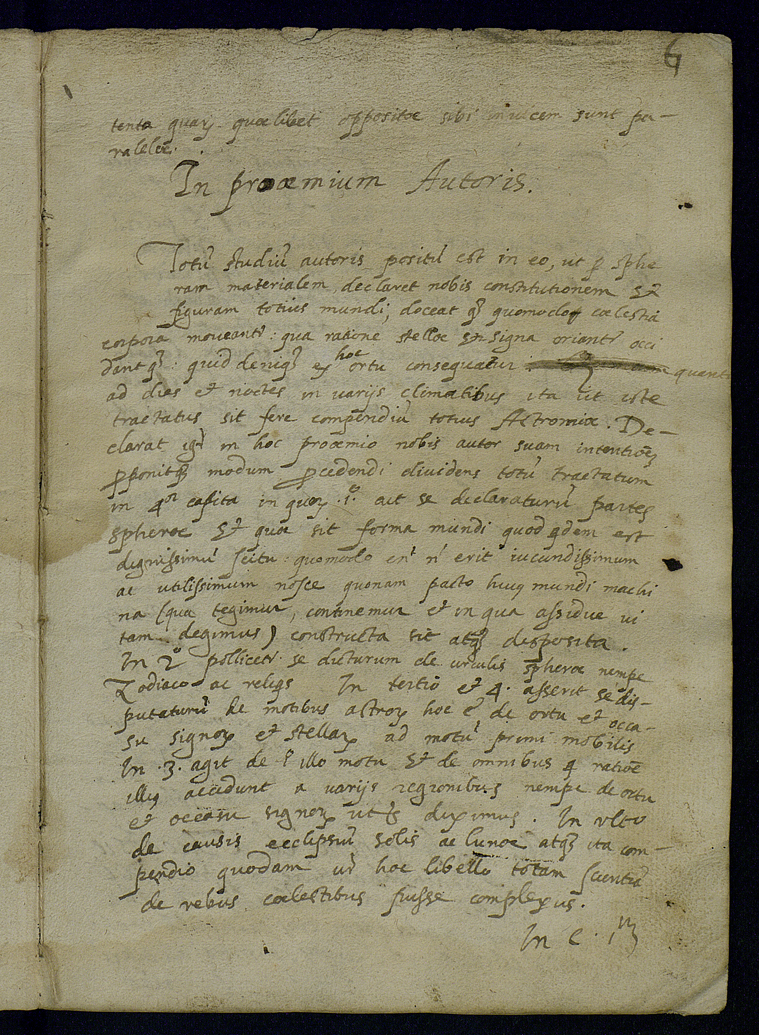 6
tenta quarũ quælibet oppositæ sibi invicem sunt pa-
ralelæ.
In proæmium Autoris.
Totũ studiũ autoris positũ est in eo, ut p sphe
ram materialem declaret nobis constitutionem et
figuram totius mundi, doceat q3 quomodo cælestia
corpora moveantr: qua ratione stellæ et signa oriantr occi
dantq3: quid deniq3 ex hoc ortu consequatur quanti
ad dies et noctes in varijs climatibus ita ut iste
tractatus sit fere compendiũ totius Astromiæ. De-
clarat igr in hoc proæmio nobis autor suam intentiõe3
pponitq3 modum pcedendi dividens totũ tractatum
in 4or capita in quorũ .1o. ait se declaraturũ partes
spheræ et quæ sit forma mundi quod qdem est
dignissimũ scitu: quomodo en' n' erit iucundissimum
ac utilissimum nosce quonam pacto huius mundi machi
na (qua tegimur, continemur et in qua assidue vi
tam degimus) constructa sit atq3 disposita.
In 2o pollicetr se dicturum de circulis spheræ nempe
Zodiaco ac reliqs In tertio et 4. asserit se dis-
putaturũ de motibus astrorũ hoc ẽ de ortu et occa-
su signorũ et stellarũ ad motũ primi mobilis
In 3. agit de illo motu et de omnibus q ratiõe
illius accidunt a varijs regionibus nempe de ortu
et occasu signorũ ut diximus. In ultõ
de causis ecclipsiũ solis ac lunæ atq3 ita com-
pendio quodam ur hoc libello totam scientiã
de rebus cælestibus fuisse complexus.
In C. 1m